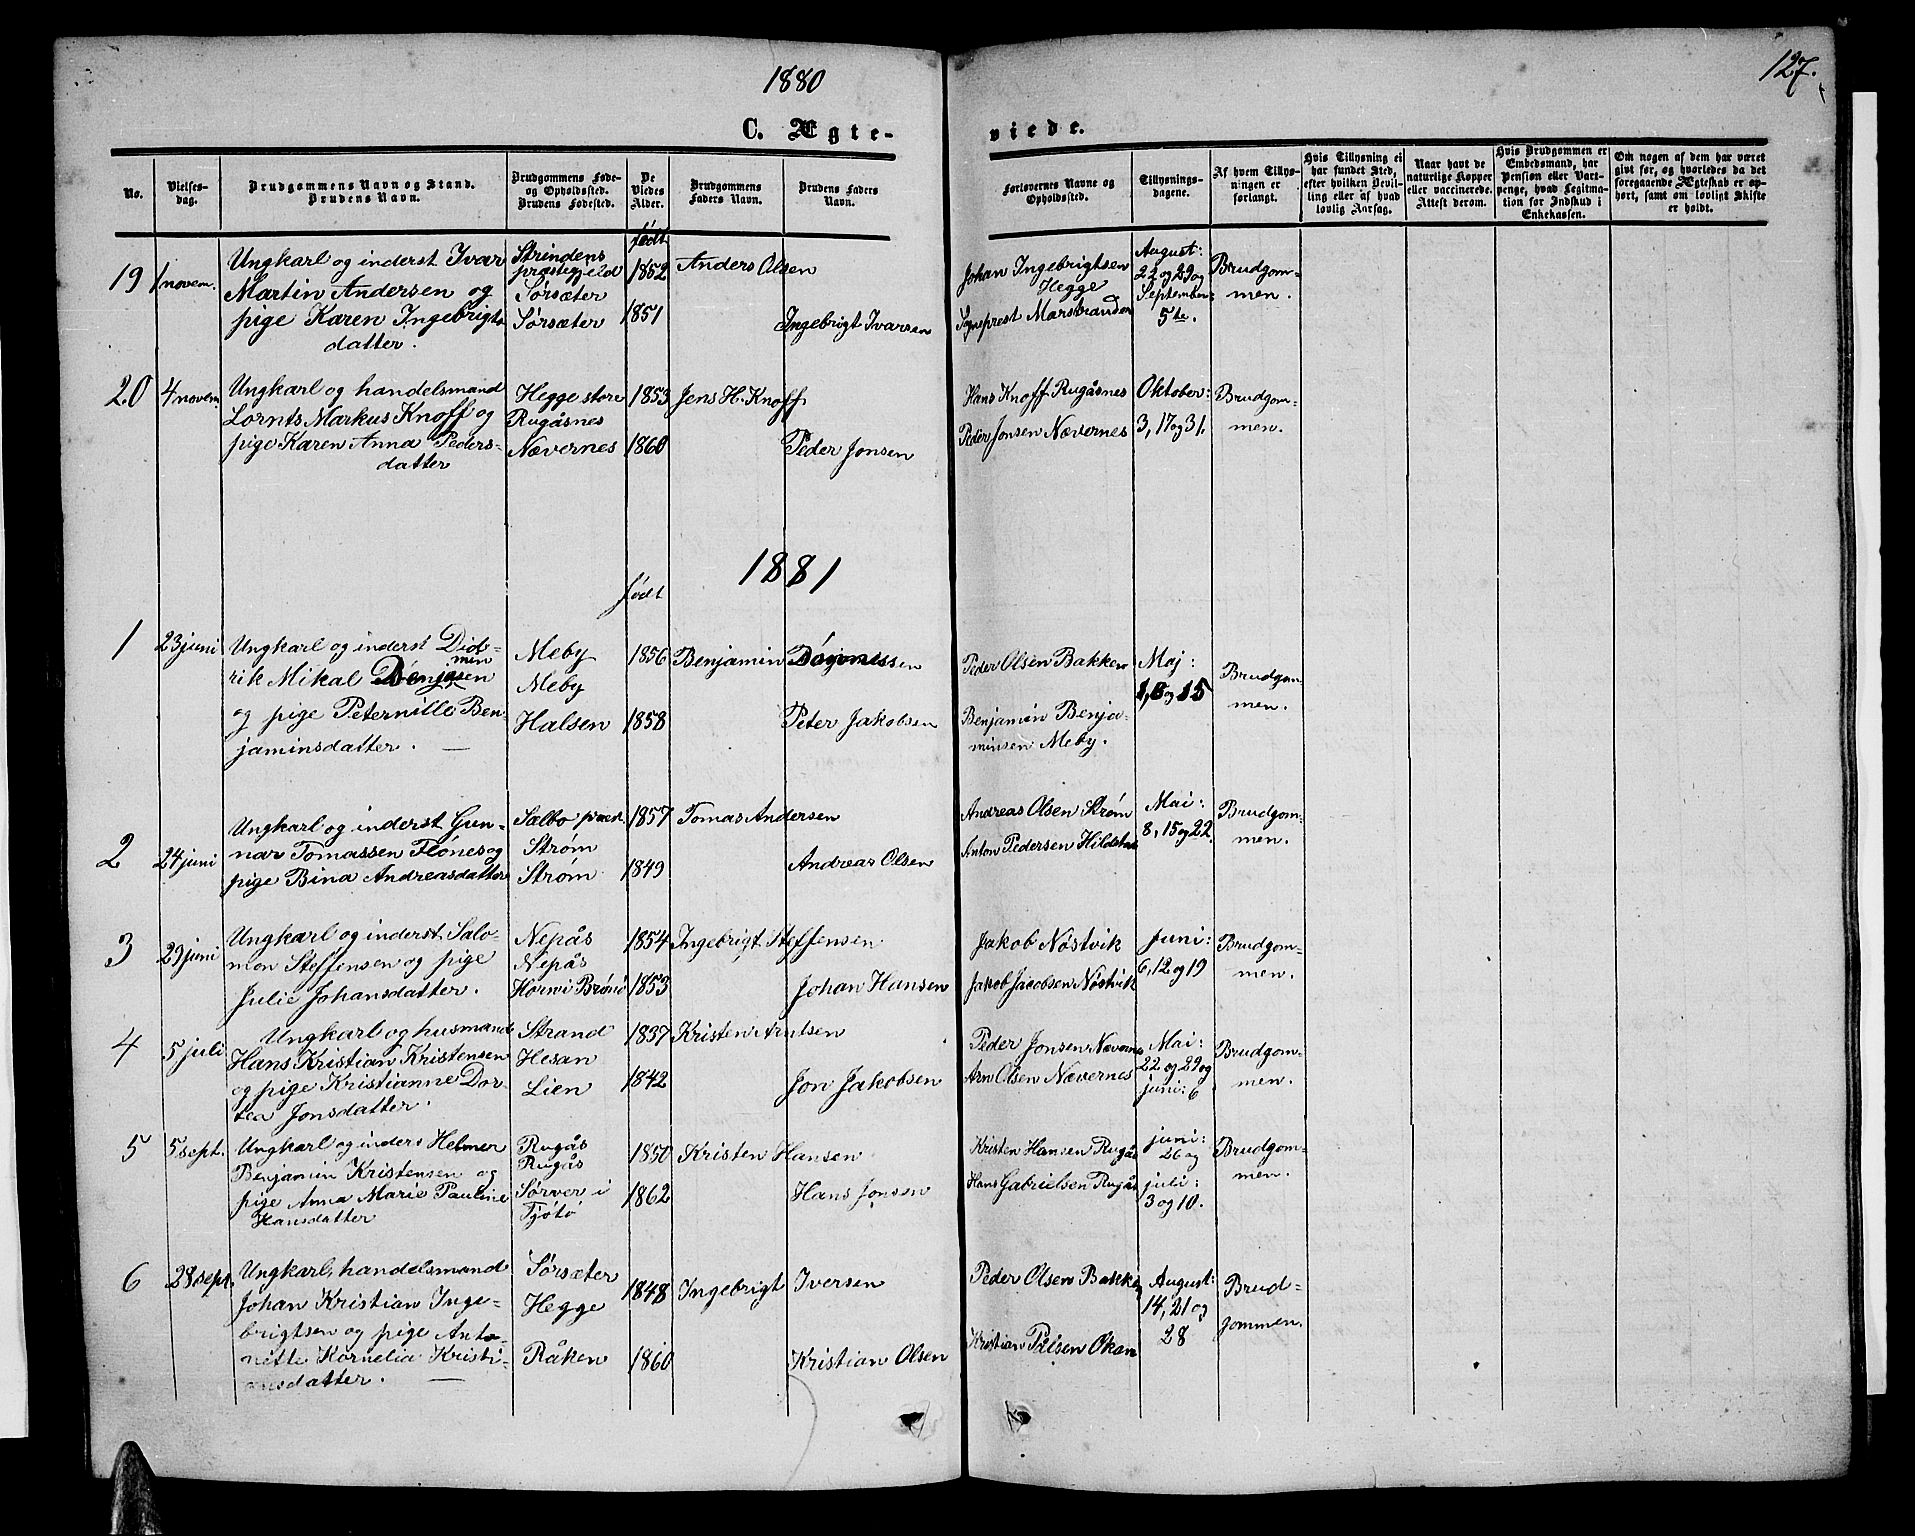 1880
127.
C. Ægte-
viede.
No.
Vielses-
dag.
Brudgommens Navn og Stand.
Brudens Navn.
Brudgommens Føde-
og Opholdssted.
Brudens Fødested.
De
Viedes
Alder.
Brudgommens
Faders Navn.
Brudens Faders
Navn.
Forlovernes Navne og
Opholdssted.
Tillysnings-
dagene.
Af hvem Tillys-
ningen er
forlangt.
Hvis Tillysning ei
har fundet Sted,
efter hvilken Bevil-
ling eller af hvad
lovlig Aarsag.
Naar havt de
naturlige Kopper
eller vaccinerede.
Attest derom.
Hvis Brudgommen er
Embedsmand, har
Pension eller Vart-
penge, hvad Legitma-
tion før Indskud i
Enkekassen.
Om nogen af dem har været
givt før, og hvorledes da det
foregaaende Ægteskab er op-
hørt, samt om lovligt Skifte
er holdt.
født
19
1 novem.
Ungkarl og inderst Ivar
Martin Andersen og
pige Karen Ingebrigts
datter.
Strindens
præstegjeld
Sørsæter
Sørsæter
1852
1851
Anders Olsen
Ingebrigt Ivarsen
Johan Ingebrigtsen
Hegge
Sogneprest Marstrander
August:
22 og 29 og
September:
5te.
Brudgom-
men.
20
4 novem.
Ungkarl og handelsmand
Lornts Markus Knoff og
pige Karen Anna Peders-
datter
Hegge store
Rugåsnes
Nævernes
1853
1860
Jens H. Knoff
Peder Jonsen
Hans Knoff Rugåsnes
Peder Jonsen Nævernes
Oktober:
3, 17 og 31.
Brudgom-
men.
1881
født
1
23 juni
Ungkarl og inderst Did-
rik Mikal Benjaminsen
og pige Peternille Ben-
jaminsdatter.
Meby
Meby
Halsen
1856
1858
Benjamin
Peter Jakobsen
Peder Olsen Bakken
Benjamin Benja-
minsen Meby.
Maj:
1, 8 og 15
Brudgom-
men.
2
24 juni
Ungkarl og inderst Gun-
nar Tomassen Flønes og
pige Bina Andreasdatter
Sælbo præst.
Strøm
Strøm
1857
1849
Tomas Andersen
Andreas Olsen
Andreas Olsen Strøm
Anton Pedersen
Mai:
8, 15 og 22.
Brudgom-
men.
3
29 juni
Ungkarl og inderst Salo-
mon Steffensen og pige
Julie Johansdatter.
Nepås
Nepås
Horn i Brønø
1854
1853
Ingebrigt Steffensen
Johan Hansen
Jakob Nøstvik
Jakob Jacobsen Nøstvik
Juni:
6, 12 og 19
Brudgom-
men.
4
5 juli
Ungkarl og husmand
Hans Kristian Kristensen
og pige Kristianne Dor-
tea Jonsdatter.
Strand
Hesan
Lien
1837
1842
Kristen Arntsen
Jon Jakobsen
Peder Jonsen Nævernes
Arn Olsen Nævernes
Mai:
22 og 29 og
juni: 6
Brudgom-
men.
5
5 sept.
Ungkarl og inders Helmer
Benjamin Kristensen og
pige Anna Marie Pauline
Hansdatter
Rugås
Rugås
Sørver i
Tjøtø
1850
1862
Kristen Hansen
Hans Jonsen
Kristen Hansen Rugås
Hans Gabrielsen Rugås
juni:
26 og
juli:
3 og 10.
Brudgom-
men.
6
28 sept.
Ungkarl, handelsmand
Johan Kristian Inge-
brigtsen og pige Anto-
nette Kornelia Kristi-
ansdatter.
Sørsæter
Hegge
Råken
1848
1860
Ingebrigt Iversen
Kristian Olsen
Peder Olsen Bakken
Kristian Pålsen Økan
August:
14, 21 og
28
Brud-
gommen.